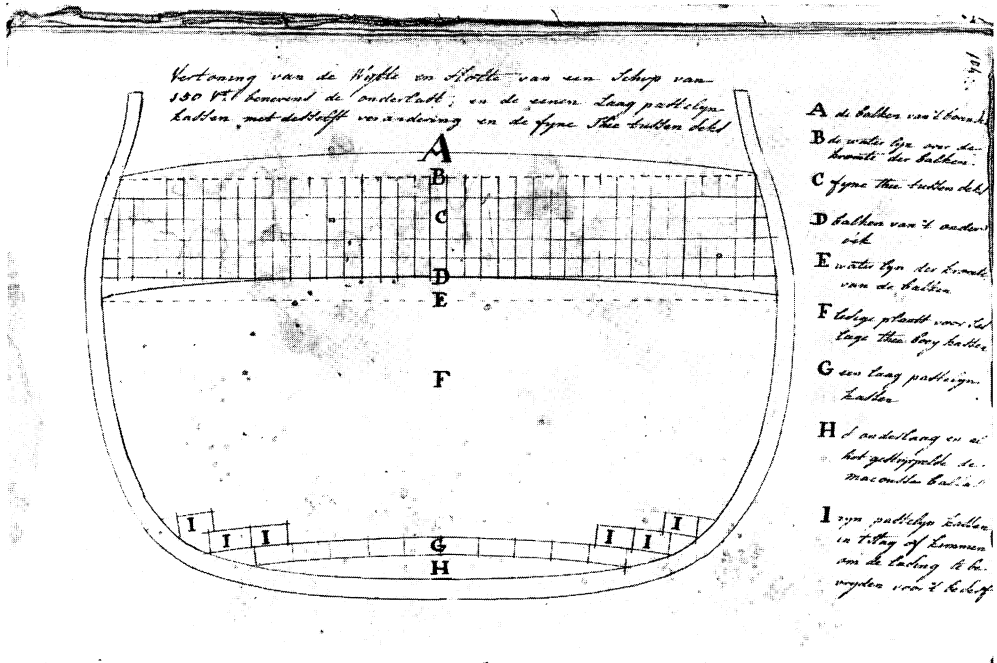 Vertoning van de Wijtte en Holte van een Schip van
150 Vt. benevens de onderlast, en de eenen Laag passelyn
kassen met desselfs verandering en de fyne Thee tussen deks
104
A
B
C
D
E
F
G
H
I I I
I I I
A de balken van 't boven
B de water lyn over de
kromte der balken.
C fyne thee tussen deks
D balken van 't onder
dek
E water lyn der kromte
van de balken
F ledige plaats voor
lage thee boey kassen
G een laag passelyn
kassen
H d' onderlaag en
het gestippelde de
I zyn passelyn kassen
in of kimmen
om de lading te be-
vryden voor 't bederf